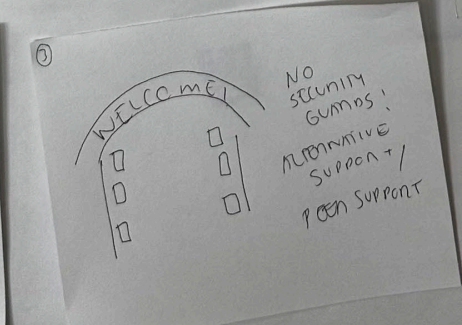 3
WELCOME!
NO
SECURITY
GUARDS!
ALTERNATIVE
SUPPORT /
PEER SUPPORT